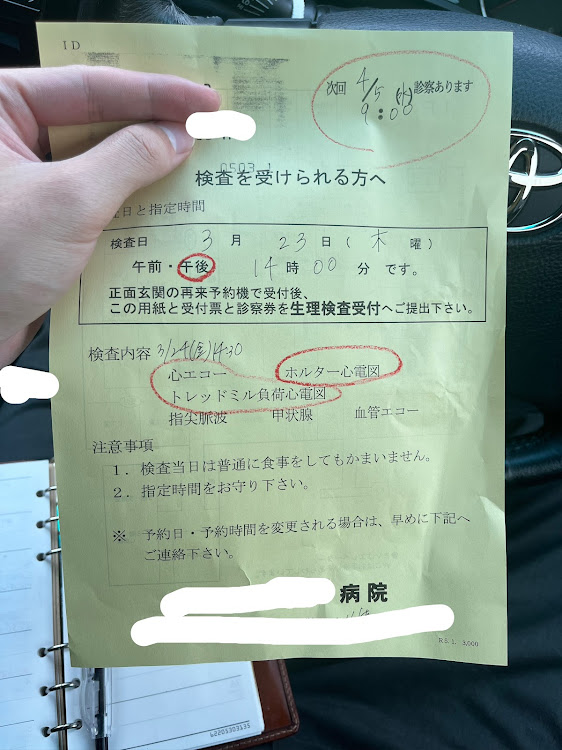 ID
次回 4/5(水)診察あります
9:00
検査を受けられる方へ
査日と指定時間
検査日 3月23日(木曜)
午前・午後 14時00分です。
正面玄関の再来予約機で受付後、
この用紙と受付票と診察券を生理検査受付へご提出下さい。
検査内容 3/24(金)14:30
心エコー ホルター心電図
トレッドミル負荷心電図
指尖脈波 甲状腺 血管エコー
注意事項
1.検査当日は普通に食事をしてもかまいません。
2.指定時間をお守り下さい。
※ 予約日・予約時間を変更される場合は、早めに下記へ
ご連絡下さい。
病院
R5.1. 3,000